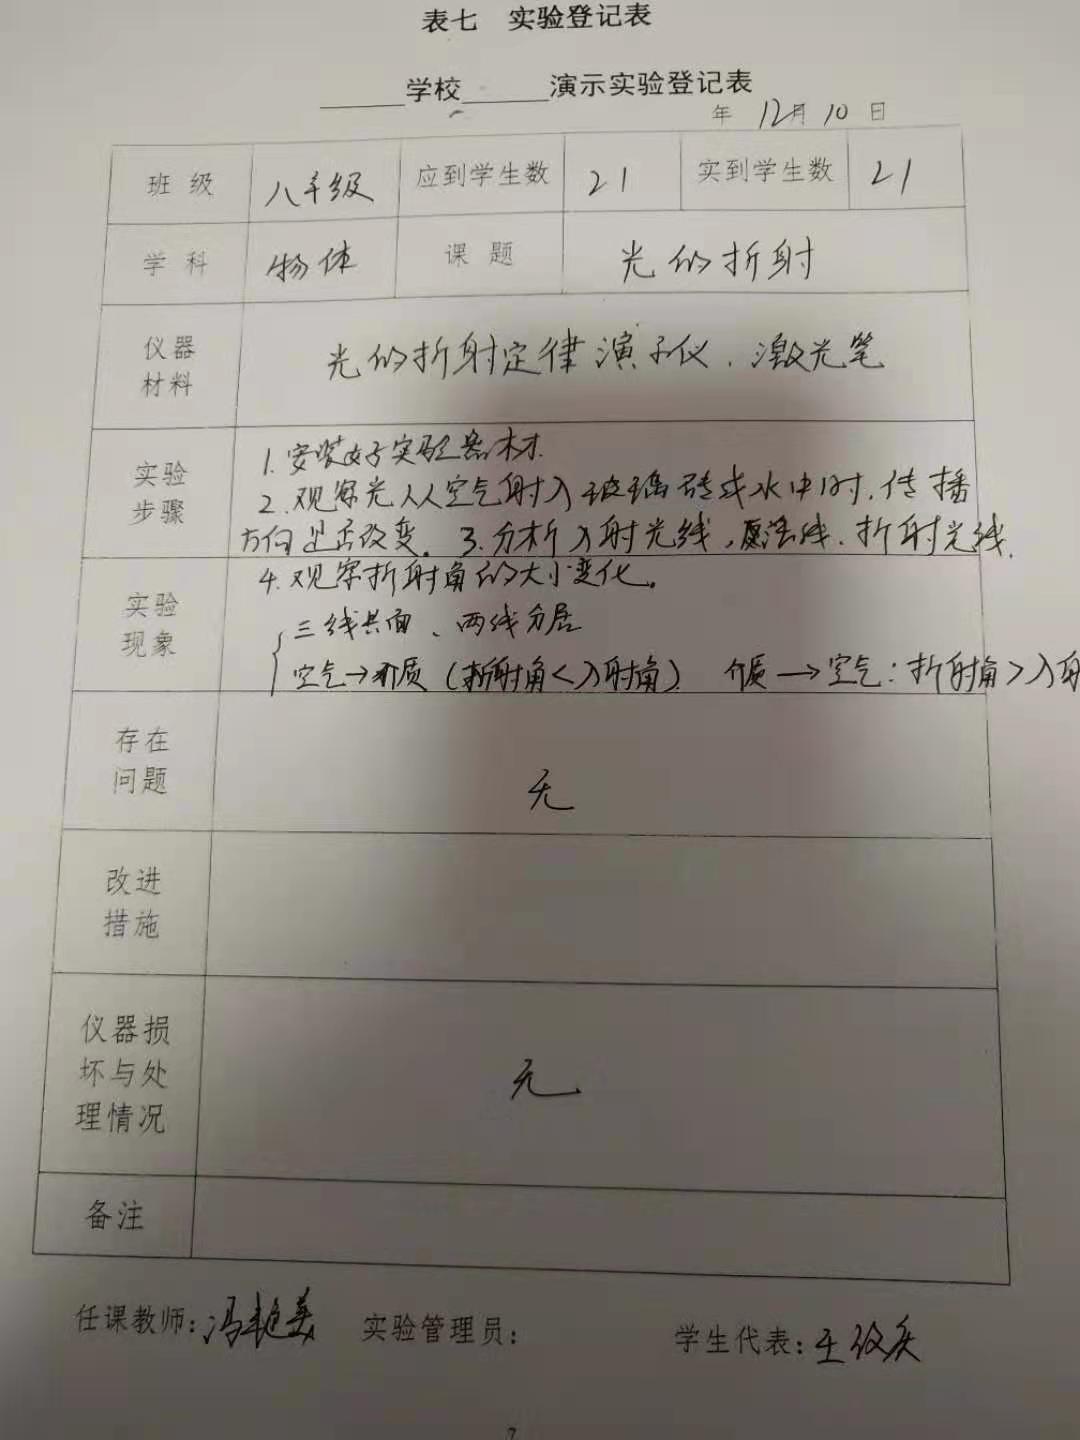 表七 实验登记表
______学校______演示实验登记表
年 12月 10 日
班 级 八年级 应到学生数 21 实到学生数 21
学 科 物体 课 题 光的折射
仪器
材料
光的折射定律演示仪.激光笔
实验
步骤
1.安装好实验器材.
2.观察光从空气射入玻璃砖或水中时.传播
方向是否改变。3.分析入射光线,法线.折射光线.
4.观察折射角的大小变化。
实验
现象
三线共面、两线分居
空气→介质(折射角<入射角) 介质→空气:折射角>入射
存在
问题
无
改进
措施
仪器损
坏与处
理情况
无
备注
任课教师:冯艳美 实验管理员: 学生代表:王
7